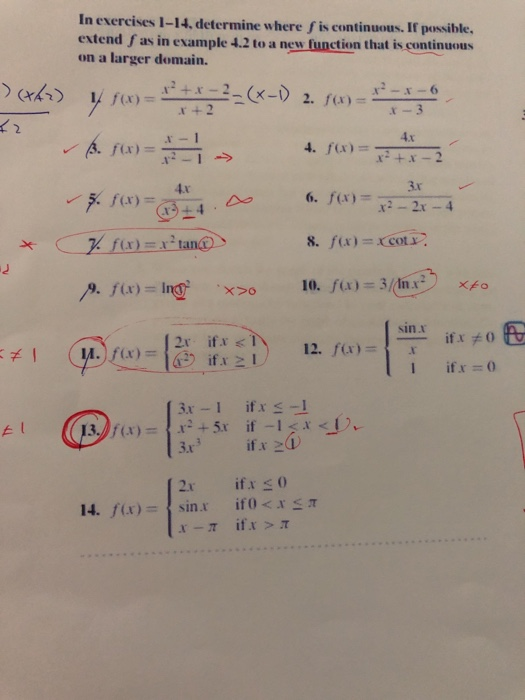 In exercises 1–14, determine where f is continuous. If possible,
extend f as in example 4.2 to a new function that is continuous
on a larger domain.
1. f(x) = (x² + x − 2)/(x + 2) = (x−1)
2. f(x) = (x² − x − 6)/(x − 3)
3. f(x) = (x − 1)/(x² − 1) →
4. f(x) = 4x/(x² + x − 2)
5. f(x) = 4x/(x² + 4) ∞
6. f(x) = 3x/(x² − 2x − 4)
7. f(x) = x² tan x
8. f(x) = x cot x
9. f(x) = ln x² x>0
10. f(x) = 3/ln x² x≠0
≠ 1 11. f(x) = { 2x if x < 1
x² if x ≥ 1
12. f(x) = { sin x / x if x ≠ 0
1 if x = 0
≠ 1 13. f(x) = { 3x − 1 if x ≤ −1
x² + 5x if −1 < x < 1
3x³ if x ≥ 1
14. f(x) = { 2x if x ≤ 0
sin x if 0 < x ≤ π
x − π if x > π